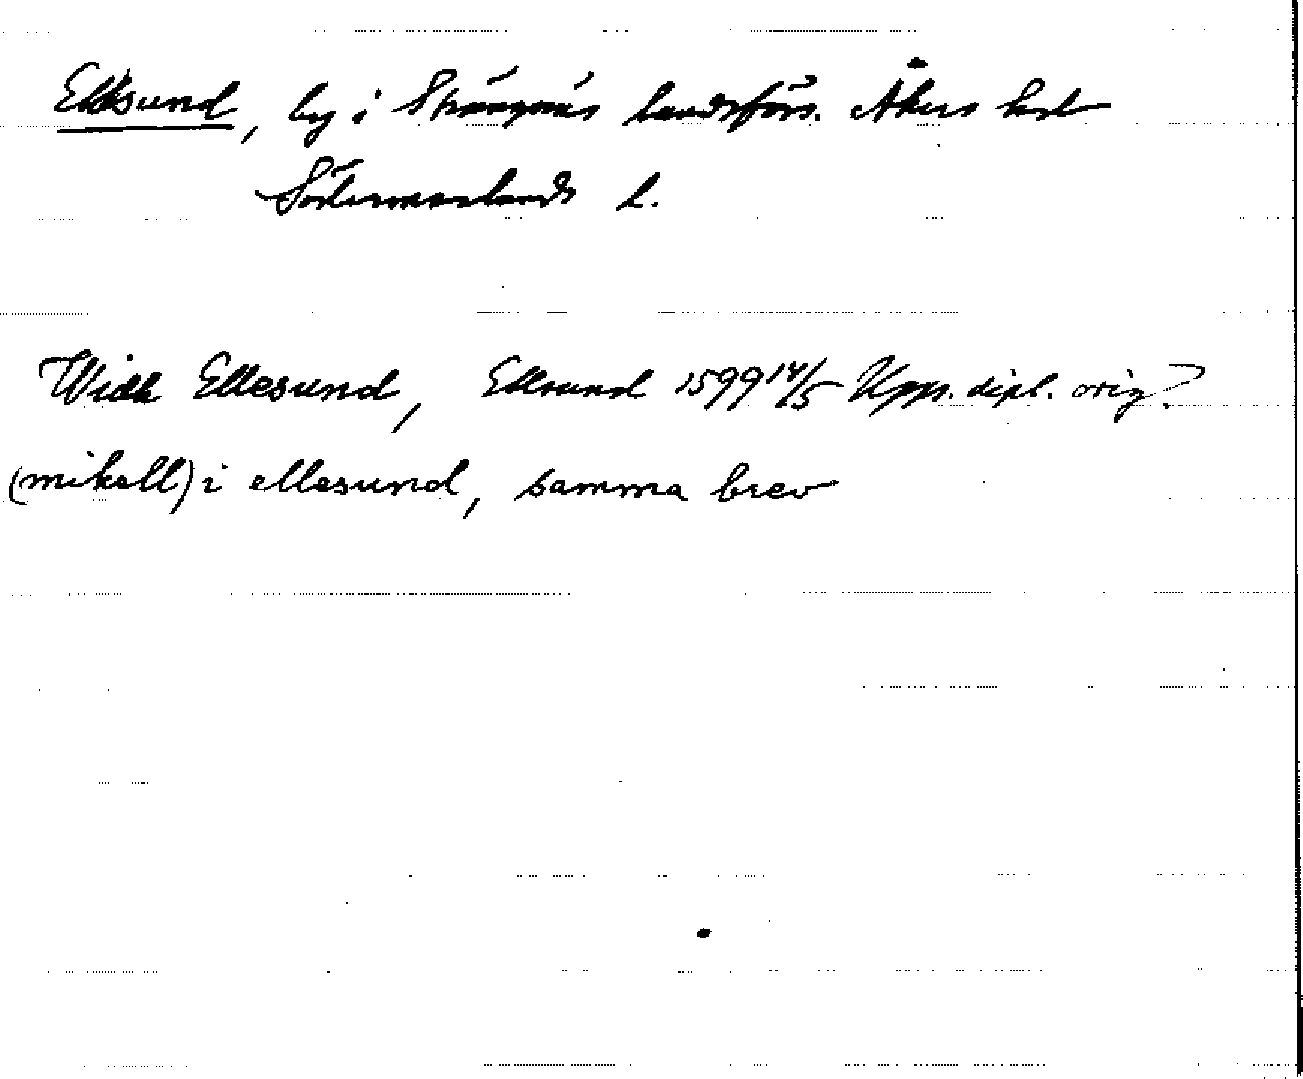 Eldsund, by i Strängnäs landsförs. Åkers hd
Södermanlands l.
Widh Ellesund, Ellsund 1599 14/5 Upps. dipl. orig?
(mikell) i ellesund, samma brev